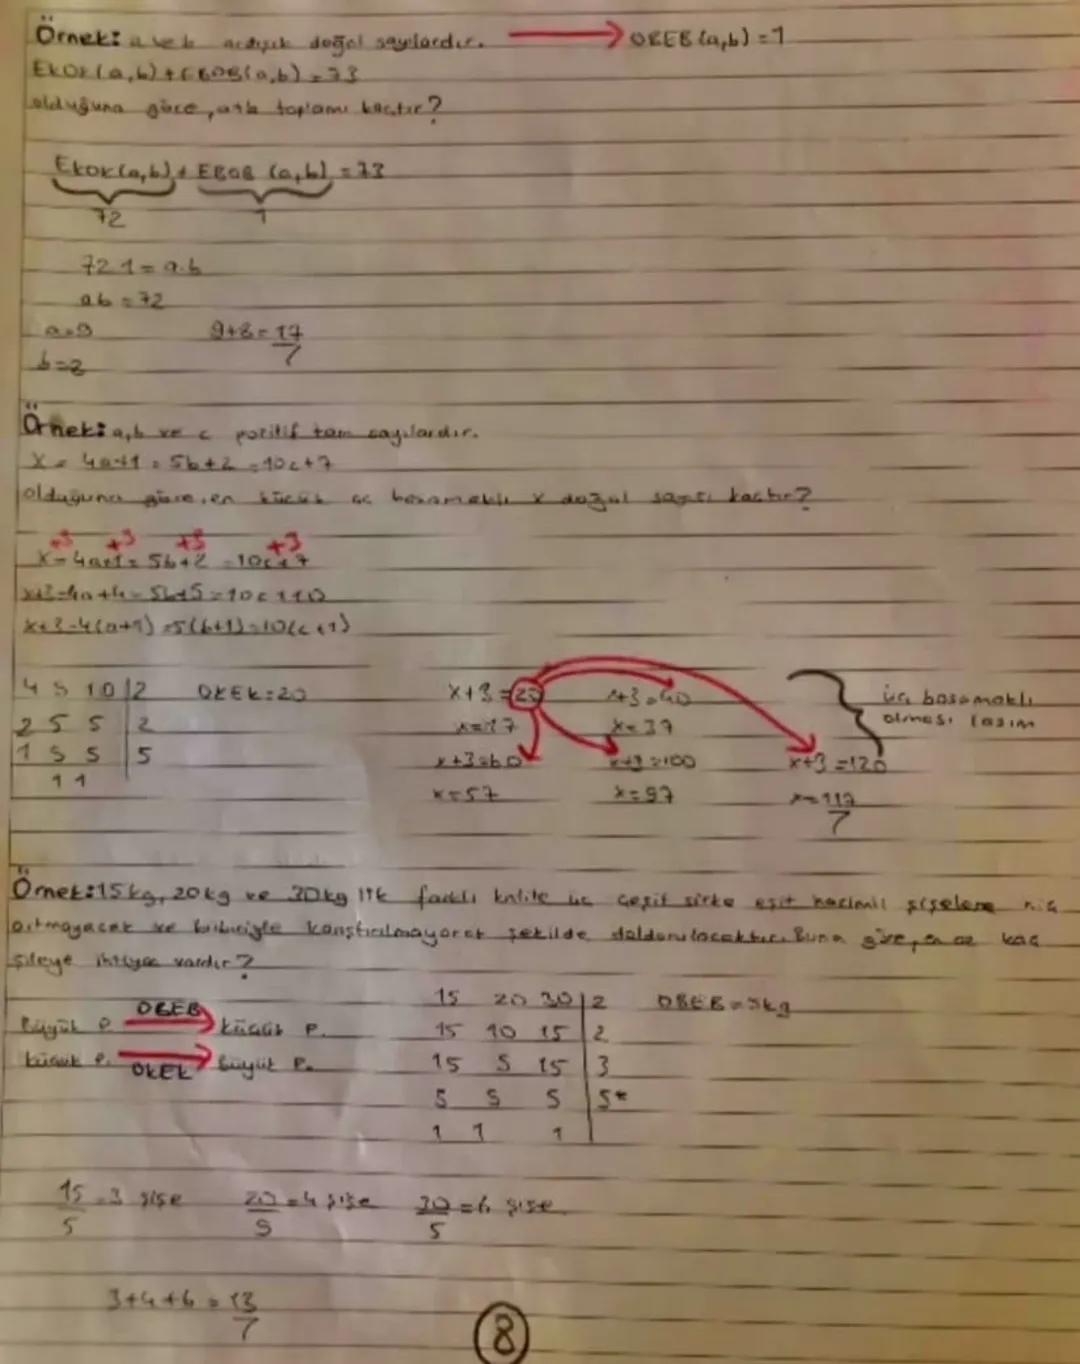 Örnek: a ve b ardışık doğal sayılardır. → OBEB(a,b)=1
EKOK(a,b)+EBOB(a,b)=73
olduğuna göre, a+b toplamı kaçtır?
EKOK(a,b)+EBOB(a,b)=73
72 1
72.1=a.b
a.b=72
a=9 9+8=17
b=8
Örnek: a,b ve c pozitif tam sayılardır.
x=4a+1=5b+2=10c+7
olduğuna göre, en küçük üç basamaklı x doğal sayısı kaçtır?
+3 +3 +3 +3
x=4a+1=5b+2=10c+7
x+3=4a+4=5b+5=10c+10
x+3=4(a+1)=5(b+1)=10(c+1)
4 5 10 | 2 OKEK=20 x+3=20 x+3=40 üç basamaklı
2 5 5 | 2 x=17 x=37 olması lazım
1 5 5 | 5 x+3=60 x+3=100 x+3=120
1 1 x=57 x=97 x=117
Örnek: 15kg, 20kg ve 30kg lık farklı kalite üç çeşit sirke eşit hacimli şişelere hiç
artmayacak ve birbiriyle karıştırılmayacak şekilde doldurulacaktır. Buna göre, en az kaç
şişeye ihtiyaç vardır?
15 20 30 | 2 OBEB=5kg
Büyük P. OBEB → küçük P. 15 10 15 | 2
küçük P. OKEK → büyük P. 15 5 15 | 3
5 5 5 | 5*
1 1 1
15/5=3 şişe 20/5=4 şişe 30/5=6 şişe
3+4+6=13
8